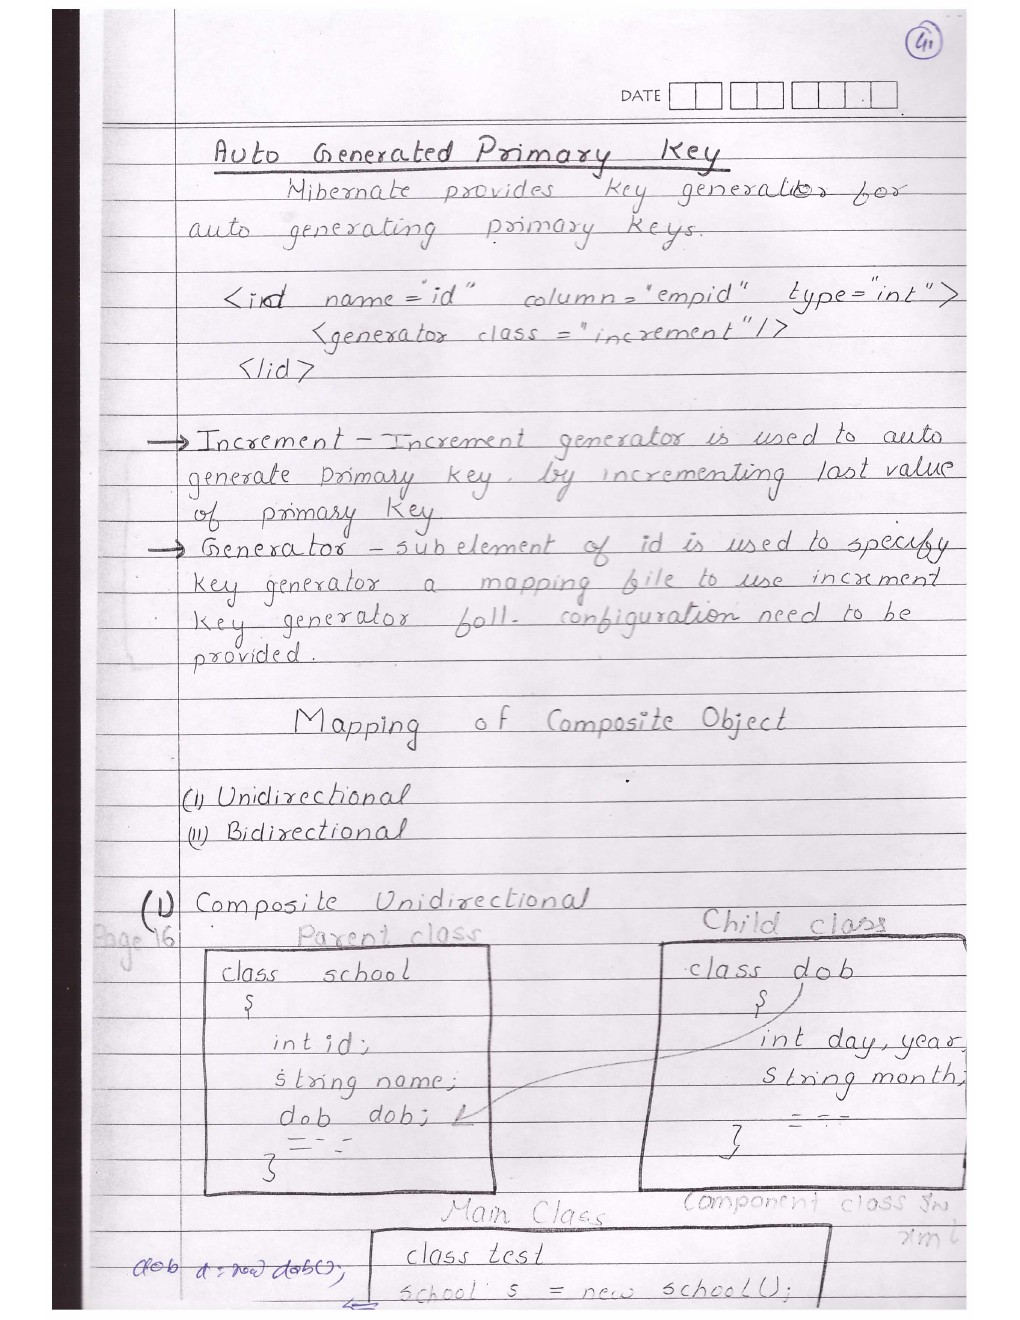 41
DATE
Auto Generated Primary Key
Hibernate provides key generator for
auto generating primary keys.
<id name="id" column="empid" type="int">
<generator class="increment"/>
</id>
→ Increment - Increment generator is used to auto
generate primary key. by incrementing last value
of primary key
→ Generator - sub element of id is used to specify
key generator a mapping file to use increment
key generator foll. configuration need to be
provided.
Mapping of Composite Object
(I) Unidirectional
(II) Bidirectional
(1) Composite Unidirectional
Page 16
Parent class
class school
{
int id;
string name;
dob dob;
}
Child class
class dob
{
int day, year,
String month;
}
Component class in
xml
Main Class
class test
school s = new school();
dob d = new dob();